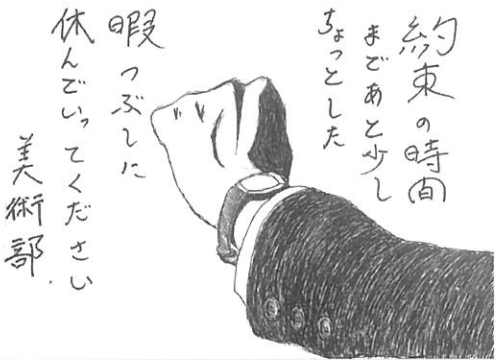 約束の時間
まであと少し
ちょっとした
暇つぶしに
休んでいってください
美術部